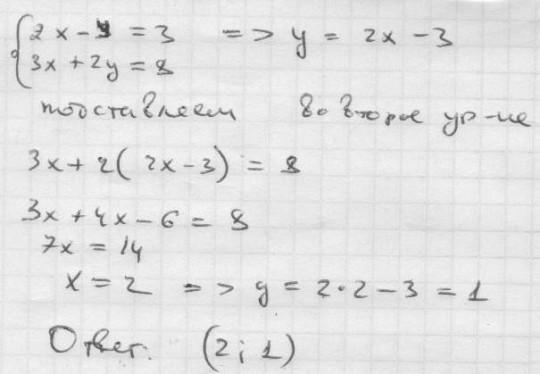 {2x - y = 3 => y = 2x - 3
3x + 2y = 8
подставляем во второе ур-ие
3x + 2(2x - 3) = 8
3x + 4x - 6 = 8
7x = 14
x = 2 => y = 2·2 - 3 = 1
Ответ. (2; 1)